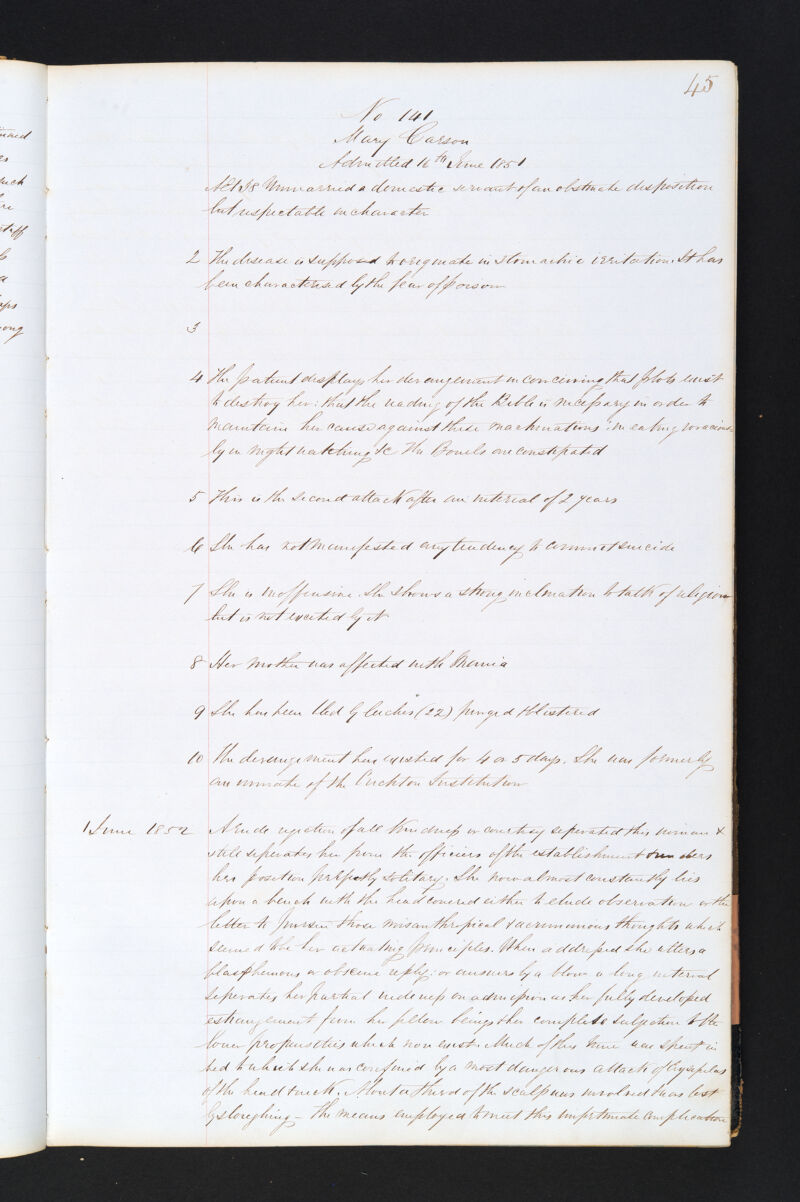 45
No 141
Mary Carson
Admitted 12th June 1851
Unmarried a domestic servant of an obstinate disposition
but respectable in character
2 The disease is supposed to originate in stomachic irritation. It has
been characterised by the fear of poison
3
4 The patient displays her derangement in conceiving that plots exist
to destroy her: that the reading of the Bible is necessary in order to
maintain her cause against these machinations: in eating voracious-
ly in night watching &c The Bowels are constipated
5 This is the second attack after an interval of 2 years
6 She has not manifested any tendency to commit suicide
7 She is inoffensive. She shows a strong inclination to talk of religion
but is not excited by it
8 Her mother was affected with Mania
9 She has been bled by leeches (22) purged & blistered
10 The derangement has existed for 4 or 5 days. She was formerly
an inmate of the Crichton Institution
1 June 1852 A rude rejection of all kindness or courtesy seperated this woman &
still seperates her from the officers of the establishment & renders
her position perfectly solitary. She now almost constantly lies
upon a bench with the head covered either to elude observation or the
better to pursue those misanthropical & acrimonious thoughts which
seemed to be her actuating principles. When addressed she utters a
blasphemous or obscene reply: or answers by a blow a long interval
seperates her partial rudeness on admission as her fully developed
estrangement from her fellow beings & her complete subjection to the
lower propensities which now exist. Much of this time was spent in
bed to which she was confined by a most dangerous attack of Erysipelas
of the head & neck. About a third of the scalp was involved & was lost
by sloughing - the means employed to meet this unfortunate complication